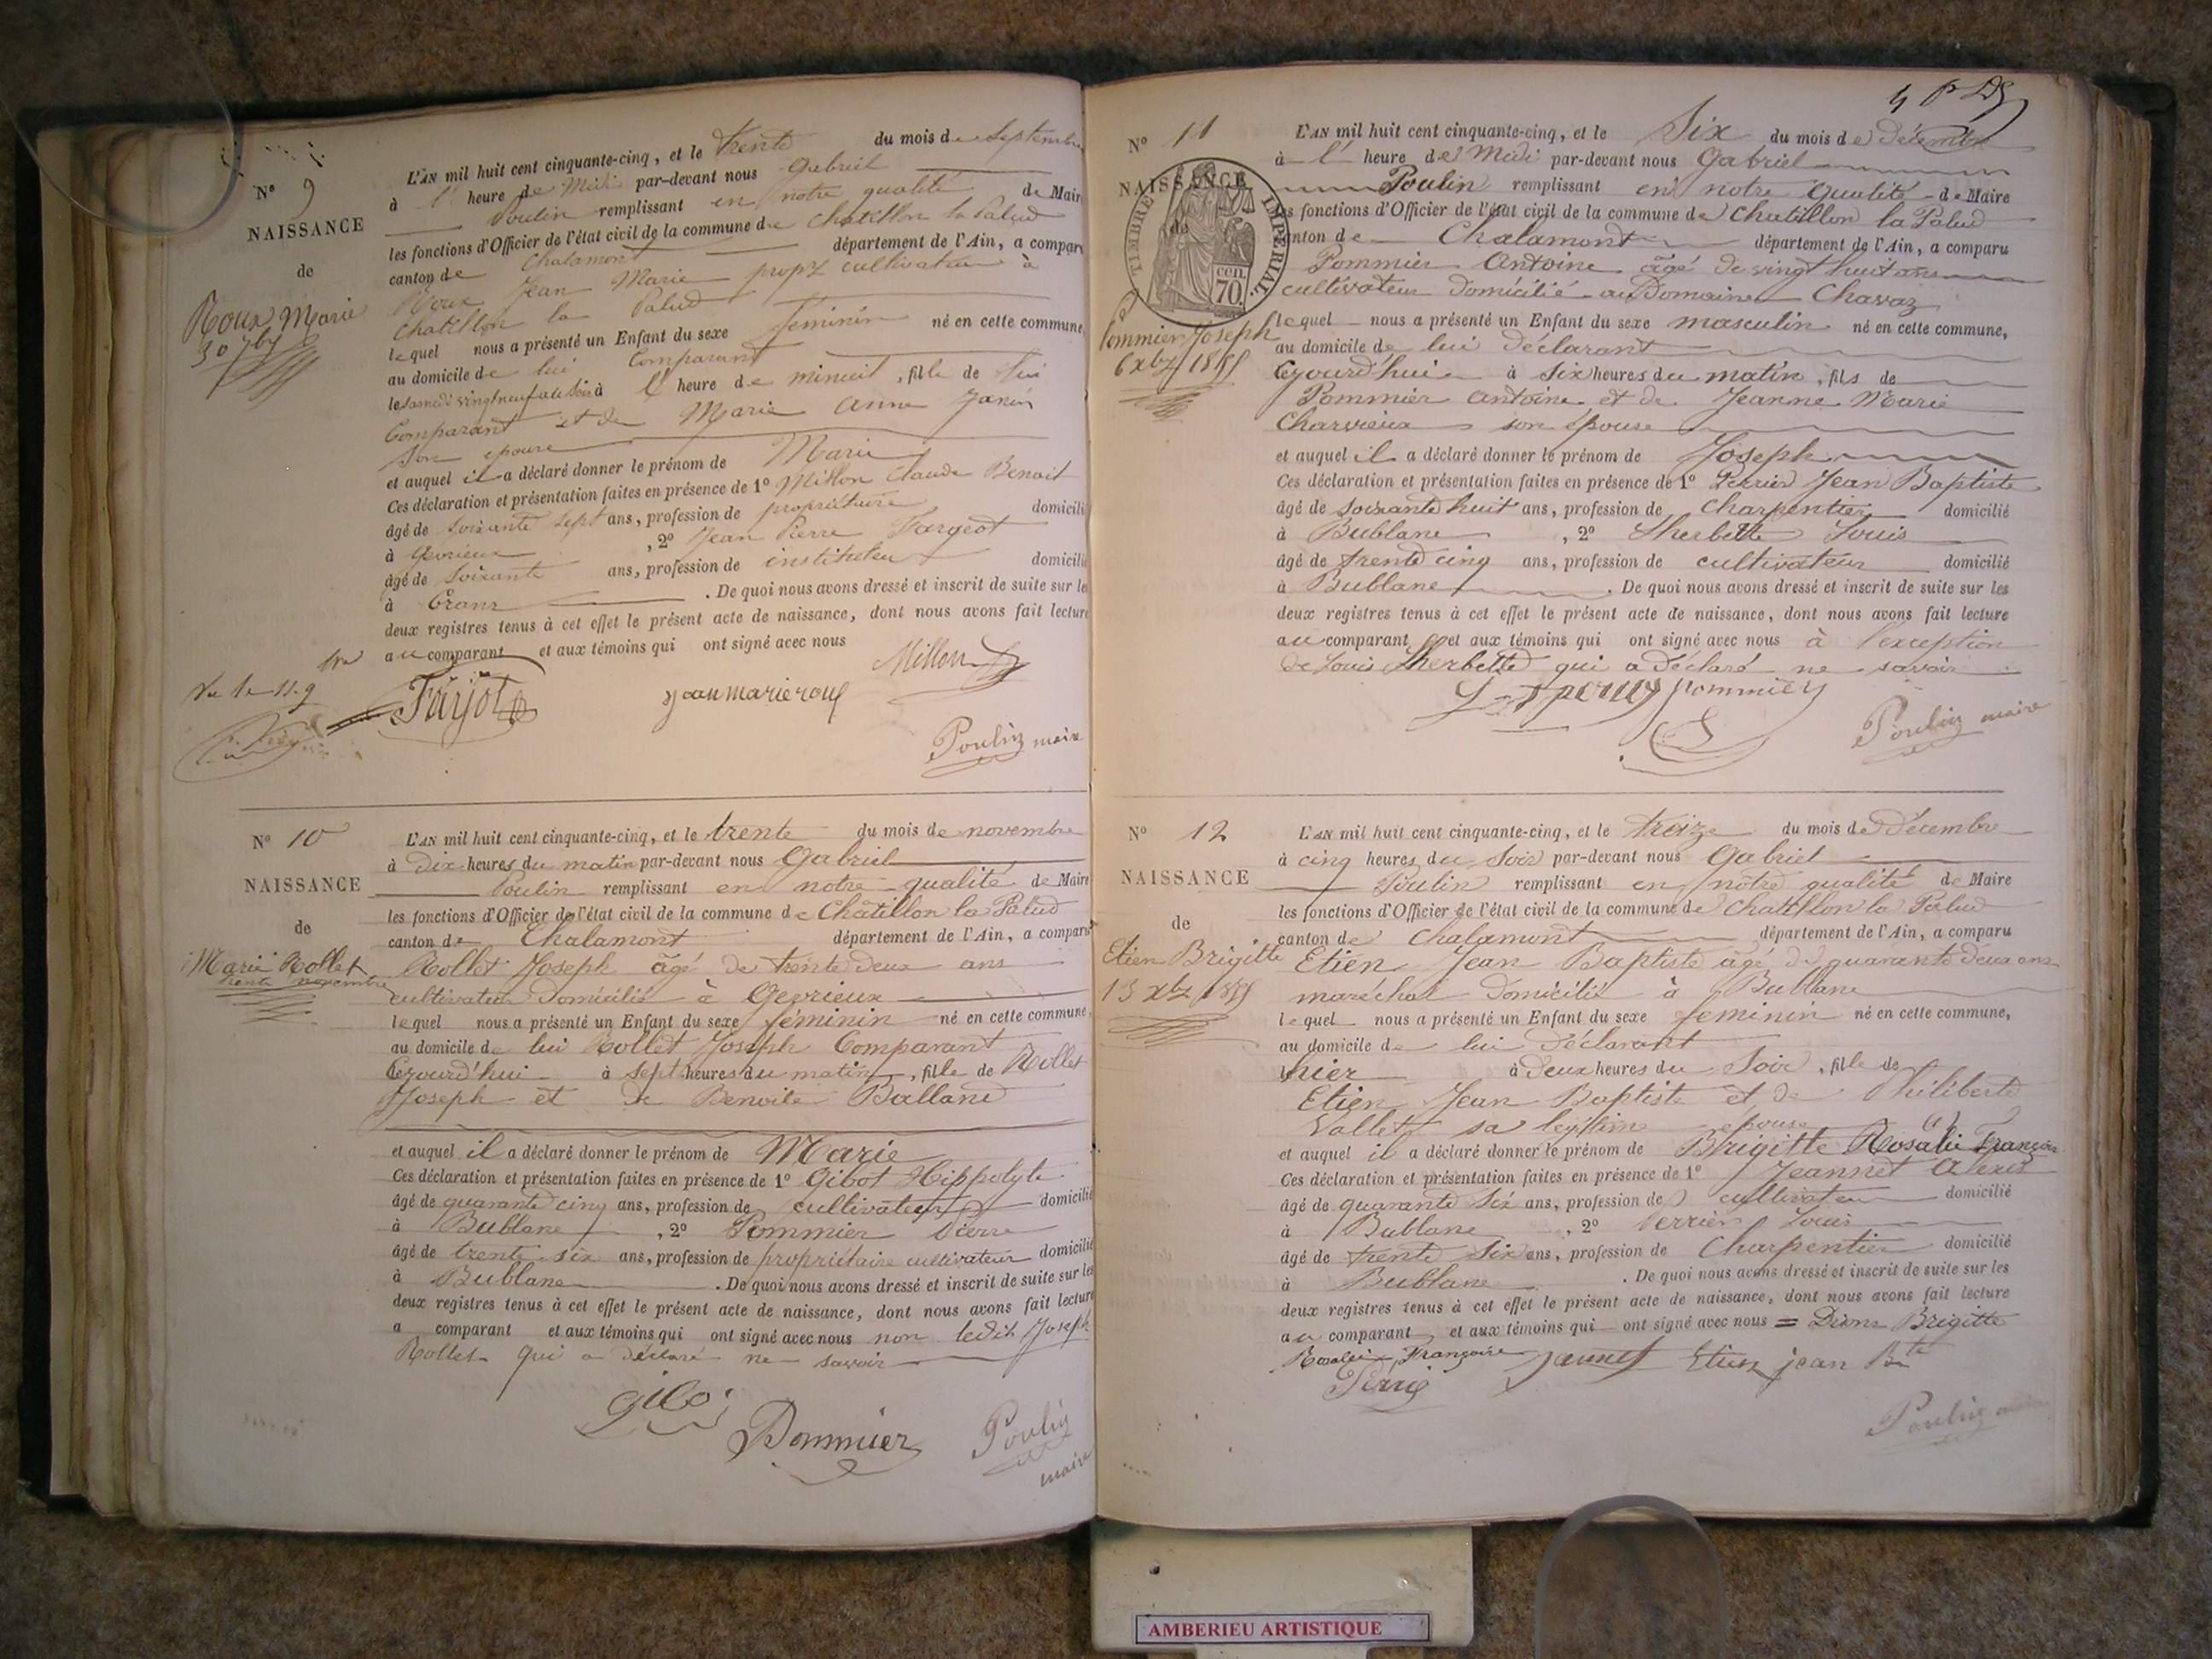 N° 9
NAISSANCE
de
Roux Marie
30 7bre
L'AN mil huit cent cinquante-cinq, et le trente du mois de Septembre
à l' heure de Midi par-devant nous Gabriel
Poulin remplissant en notre qualité de Maire
les fonctions d'Officier de l'état civil de la commune de Chatillon la Palud
canton de Chalamont département de l'Ain, a comparu
Roux Jean Marie propre cultivateur à
Chatillon la Palud
lequel nous a présenté un Enfant du sexe féminin né en cette commune,
au domicile de lui Comparant
le samedi vingt neuf à l' heure de minuit, fille de lui
Comparant et de Marie Anne Janin
son epouse
et auquel il a déclaré donner le prénom de Marie
Ces déclaration et présentation faites en présence de 1° Millon Claude Benoit
âgé de soixante sept ans, profession de propriétaire domicilié
à Gevrieux, 2° Jean Pierre Fargeot
âgé de soixante ans, profession de instituteur domicilié
à Crans. De quoi nous avons dressé et inscrit de suite sur les
deux registres tenus à cet effet le présent acte de naissance, dont nous avons fait lecture
au comparant et aux témoins qui ont signé avec nous
Millon
Farjot
jean marie roux
Poulin maire
N° 10
NAISSANCE
de
Marie Rollet
trente novembre
L'AN mil huit cent cinquante-cinq, et le trente du mois de novembre
à Dix heures du matin par-devant nous Gabriel
Poulin remplissant en notre qualité de Maire
les fonctions d'Officier de l'état civil de la commune de Chatillon la Palud
canton de Chalamont département de l'Ain, a comparu
Rollet Joseph âgé de trente deux ans
cultivateur domicilié à Gevrieux
lequel nous a présenté un Enfant du sexe féminin né en cette commune,
au domicile de lui Rollet Joseph Comparant
Cejourd'hui à sept heures du matin, fille de Rollet
Joseph et de Benoite Balland
et auquel il a déclaré donner le prénom de Marie
Ces déclaration et présentation faites en présence de 1° Gibot Hippolyte
âgé de quarante cinq ans, profession de cultivateur domicilié
à Bublane, 2° Pommier Pierre
âgé de trente six ans, profession de propriétaire cultivateur domicilié
à Bublane. De quoi nous avons dressé et inscrit de suite sur les
deux registres tenus à cet effet le présent acte de naissance, dont nous avons fait lecture
a comparant et aux témoins qui ont signé avec nous non ledit Joseph
Rollet qui a déclaré ne savoir
gibo
Pommier
Poulin
maire
N° 11
NAISSANCE
de
TIMBRE IMPERIAL
70 cen.
Pommier Joseph
6 xbre 1855
L'AN mil huit cent cinquante-cinq, et le Six du mois de décembre
à l' heure de Midi par-devant nous Gabriel
Poulin remplissant en notre qualité de Maire
les fonctions d'Officier de l'état civil de la commune de Chatillon la Palud
canton de Chalamont département de l'Ain, a comparu
Pommier Antoine âgé de vingt huit ans
cultivateur domicilié au Domaine Chavaz
lequel nous a présenté un Enfant du sexe masculin né en cette commune,
au domicile de lui déclarant
Cejourd'hui à six heures du matin, fils de
Pommier Antoine et de Jeanne Marie
Charvieux son épouse
et auquel il a déclaré donner le prénom de Joseph
Ces déclaration et présentation faites en présence de 1° Perrier Jean Baptiste
âgé de soixante huit ans, profession de Charpentier domicilié
à Bublane, 2° Sherbette Louis
âgé de trente cinq ans, profession de cultivateur domicilié
à Bublane. De quoi nous avons dressé et inscrit de suite sur les
deux registres tenus à cet effet le présent acte de naissance, dont nous avons fait lecture
au comparant et aux témoins qui ont signé avec nous à l'exception
de Louis Sherbette qui a déclaré ne savoir
pommier
Poulin maire
N° 12
NAISSANCE
de
Etien Brigitte
13 xbre 1855
L'AN mil huit cent cinquante-cinq, et le treize du mois de Décembre
à cinq heures du soir par-devant nous Gabriel
Poulin remplissant en notre qualité de Maire
les fonctions d'Officier de l'état civil de la commune de Chatillon la Palud
canton de Chalamont département de l'Ain, a comparu
Etien Jean Baptiste âgé de quarante deux ans
maréchal domicilié à Bublane
lequel nous a présenté un Enfant du sexe feminin né en cette commune,
au domicile de lui déclarant
hier à deux heures du soir, fille de
Etien Jean Baptiste et de Philiberte
Vallet sa légitime épouse
et auquel il a déclaré donner le prénom de Brigitte Rosalie Françoise
Ces déclaration et présentation faites en présence de 1° Jeannet Alexis
âgé de quarante six ans, profession de cultivateur domicilié
à Bublane, 2° Perrier Louis
âgé de trente six ans, profession de Charpentier domicilié
à Bublane. De quoi nous avons dressé et inscrit de suite sur les
deux registres tenus à cet effet le présent acte de naissance, dont nous avons fait lecture
au comparant et aux témoins qui ont signé avec nous = Disons Brigitte
Rosalie Françoise Jannet Etien jean Bte
Poulin maire
AMBERIEU ARTISTIQUE